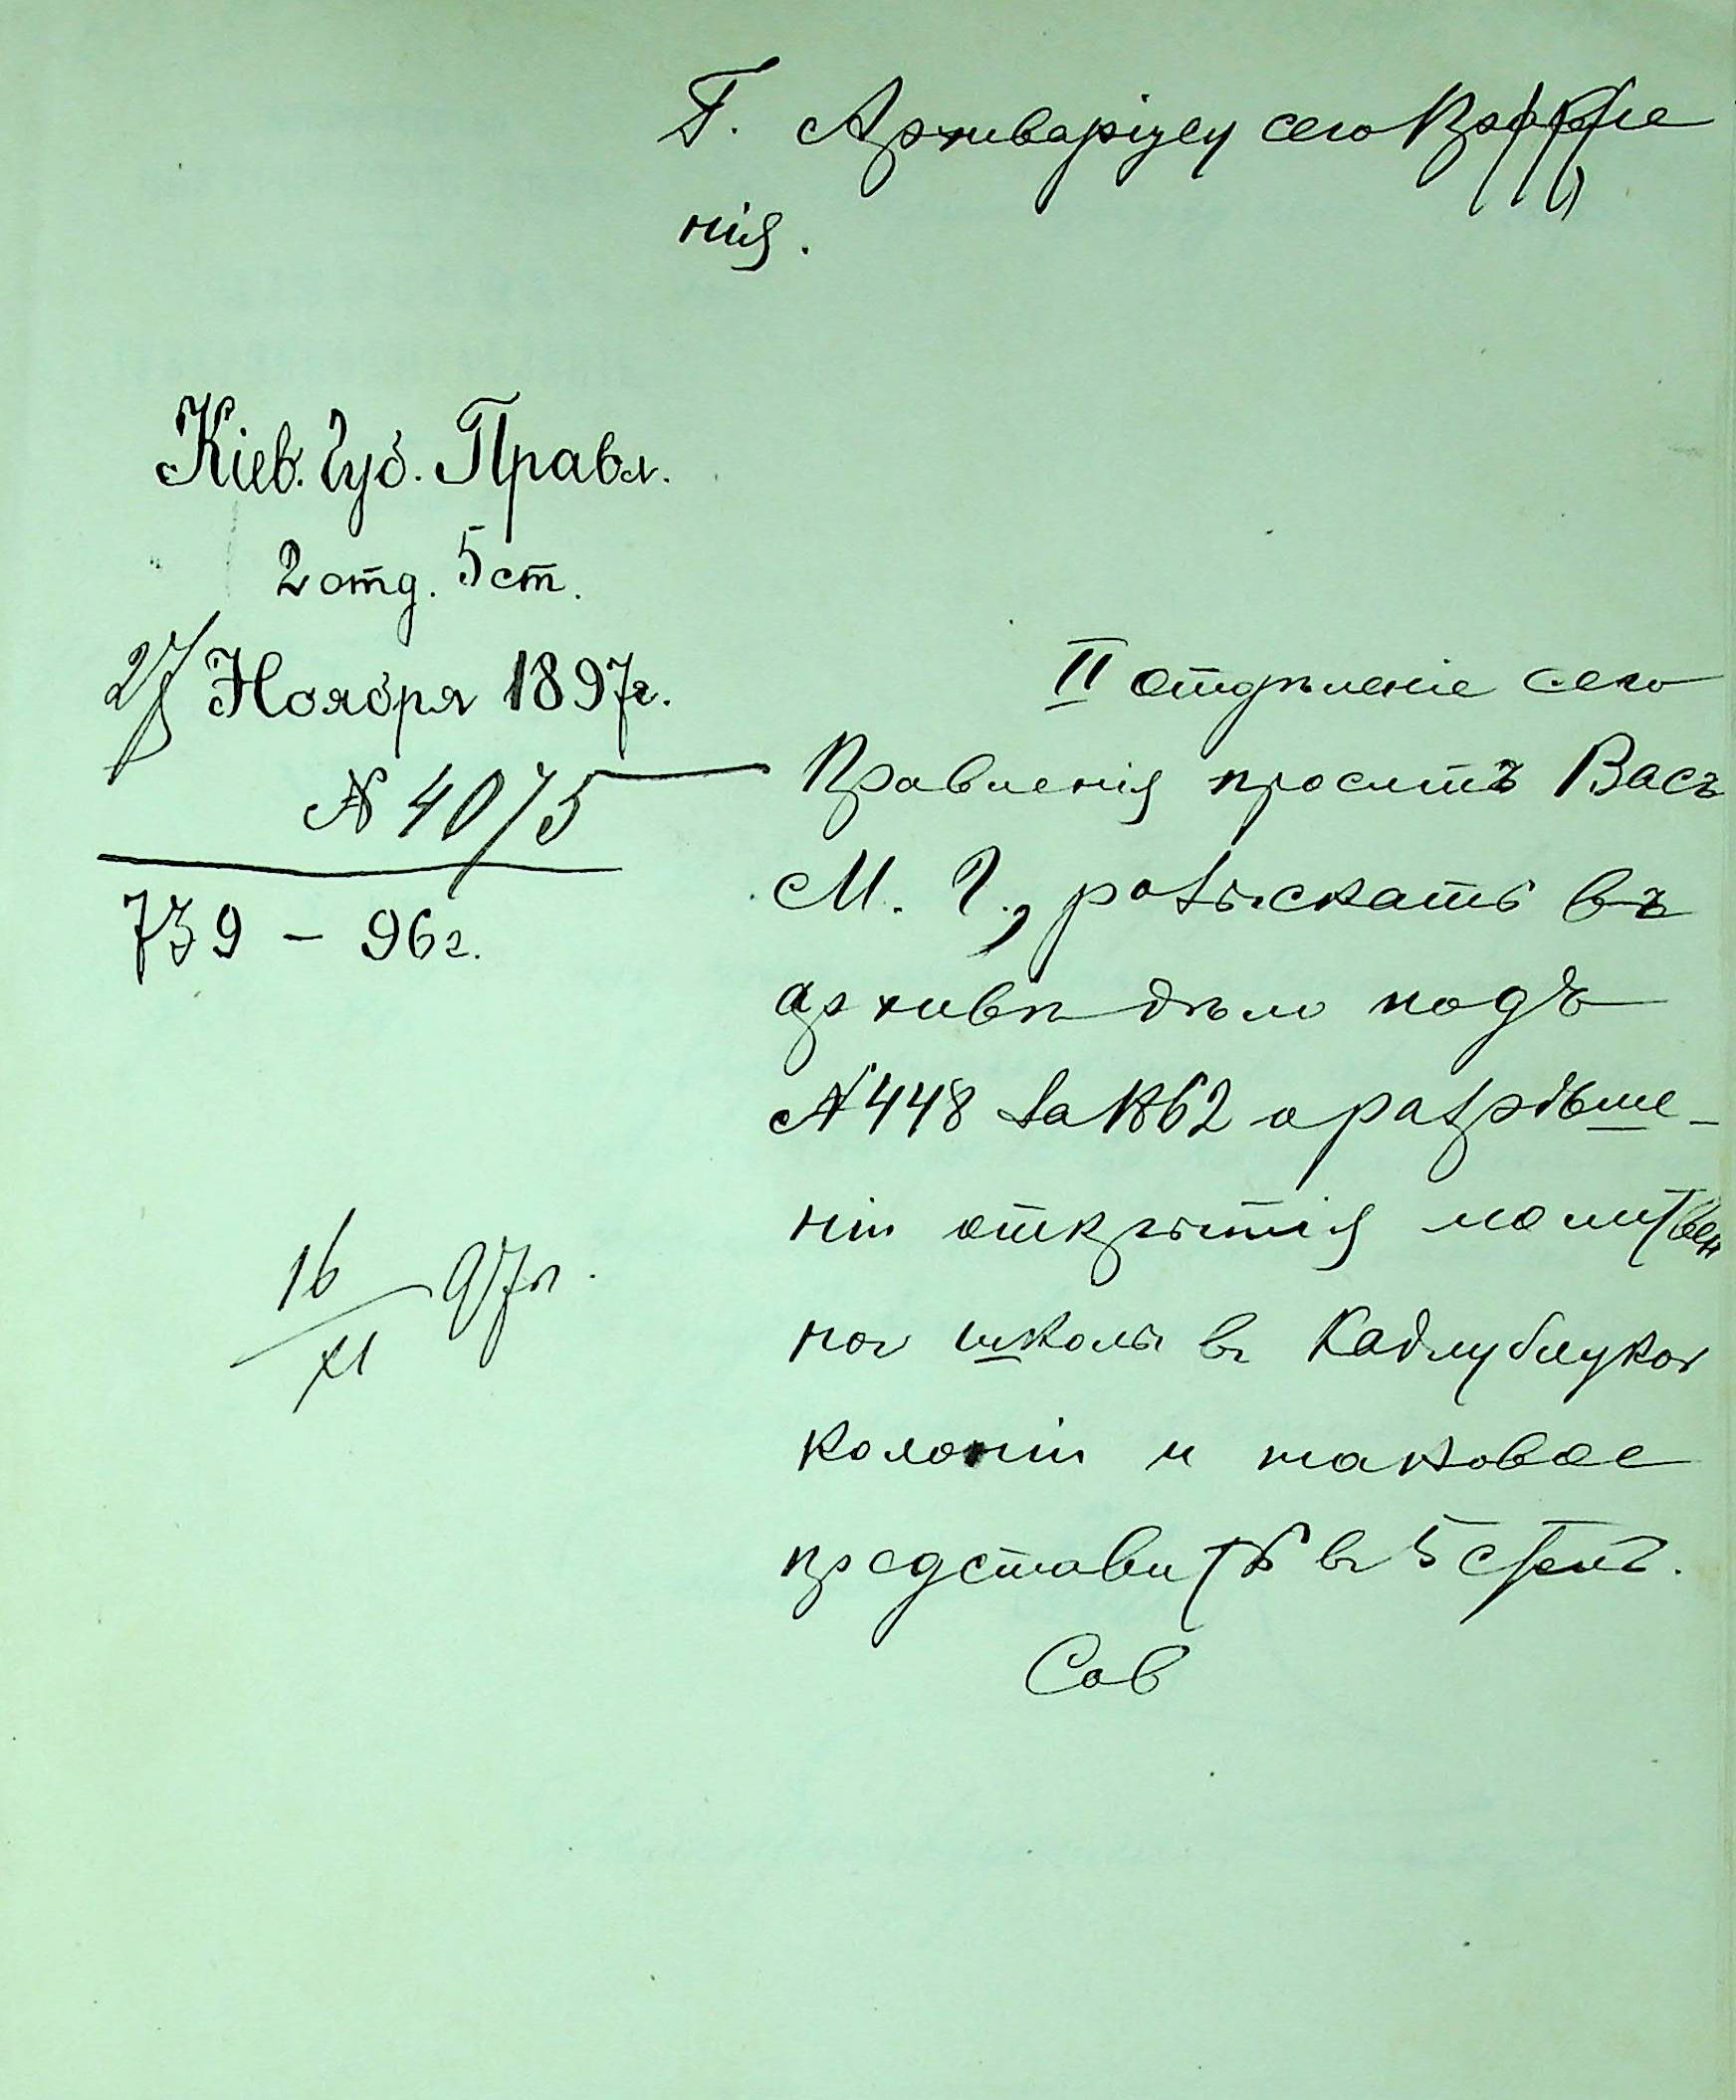 Г. Архиваріусу сего Правле
нія.
Кіев. Губ. Правл.
2 отд. 5 ст.
27 Ноября 1897 г.
№ 4075
739 – 96 г.
16/XI 97 г.
II отдѣленіе сего
Правленія проситъ Васъ
М. Г., розыскать въ
архивѣ дѣло подъ
№ 448 за 1862 о разрѣше-
ніи открытія молитвен
ной школы въ Кадлубицкой
колоніи и таковое
представить въ 5 столъ.
Сов